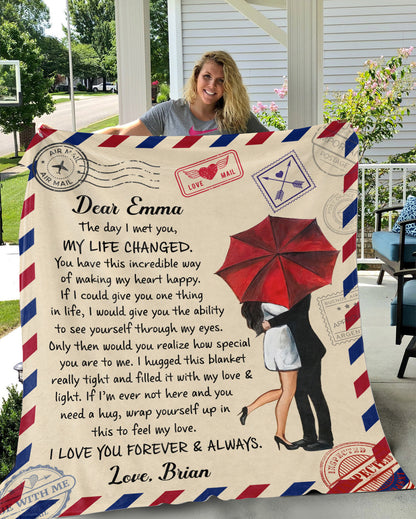 AIR MAIL
AIR MAIL
LOVE MAIL
Dear Emma
The day I met you,
MY LIFE CHANGED.
You have this incredible way
of making my heart happy.
If I could give you one thing
in life, I would give you the ability
to see yourself through my eyes.
Only then would you realize how special
you are to me. I hugged this blanket
really tight and filled it with my love &
light. If I'm ever not here and you
need a hug, wrap yourself up in
this to feel my love.
I LOVE YOU FOREVER & ALWAYS.
Love, Brian
INSPECTED
INSPECTED
WITH ME